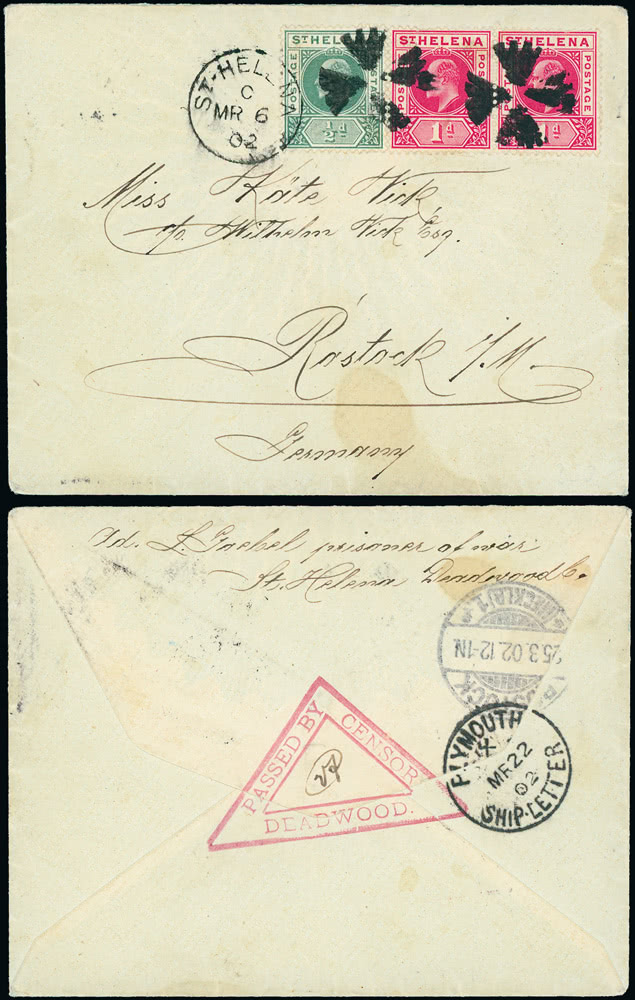 ST HELENA
POSTAGE
½d
ST HELENA
POSTAGE
POSTAGE
1d
ST HELENA
POSTAGE
1d
ST. HELENA
C
MR 6
02
Miss Käte Vick
c/o. Wilhelm Vick Esq.
Rostock i/M.
Germany
Ad. L. Goebel prisoner of war
St. Helena Deadwood C.
ROSTOCK
25.3.02.12-1N.
(MECKLB) 1.
PASSED BY
CENSOR
DEADWOOD.
PLYMOUTH
MR 22
02
SHIP-LETTER